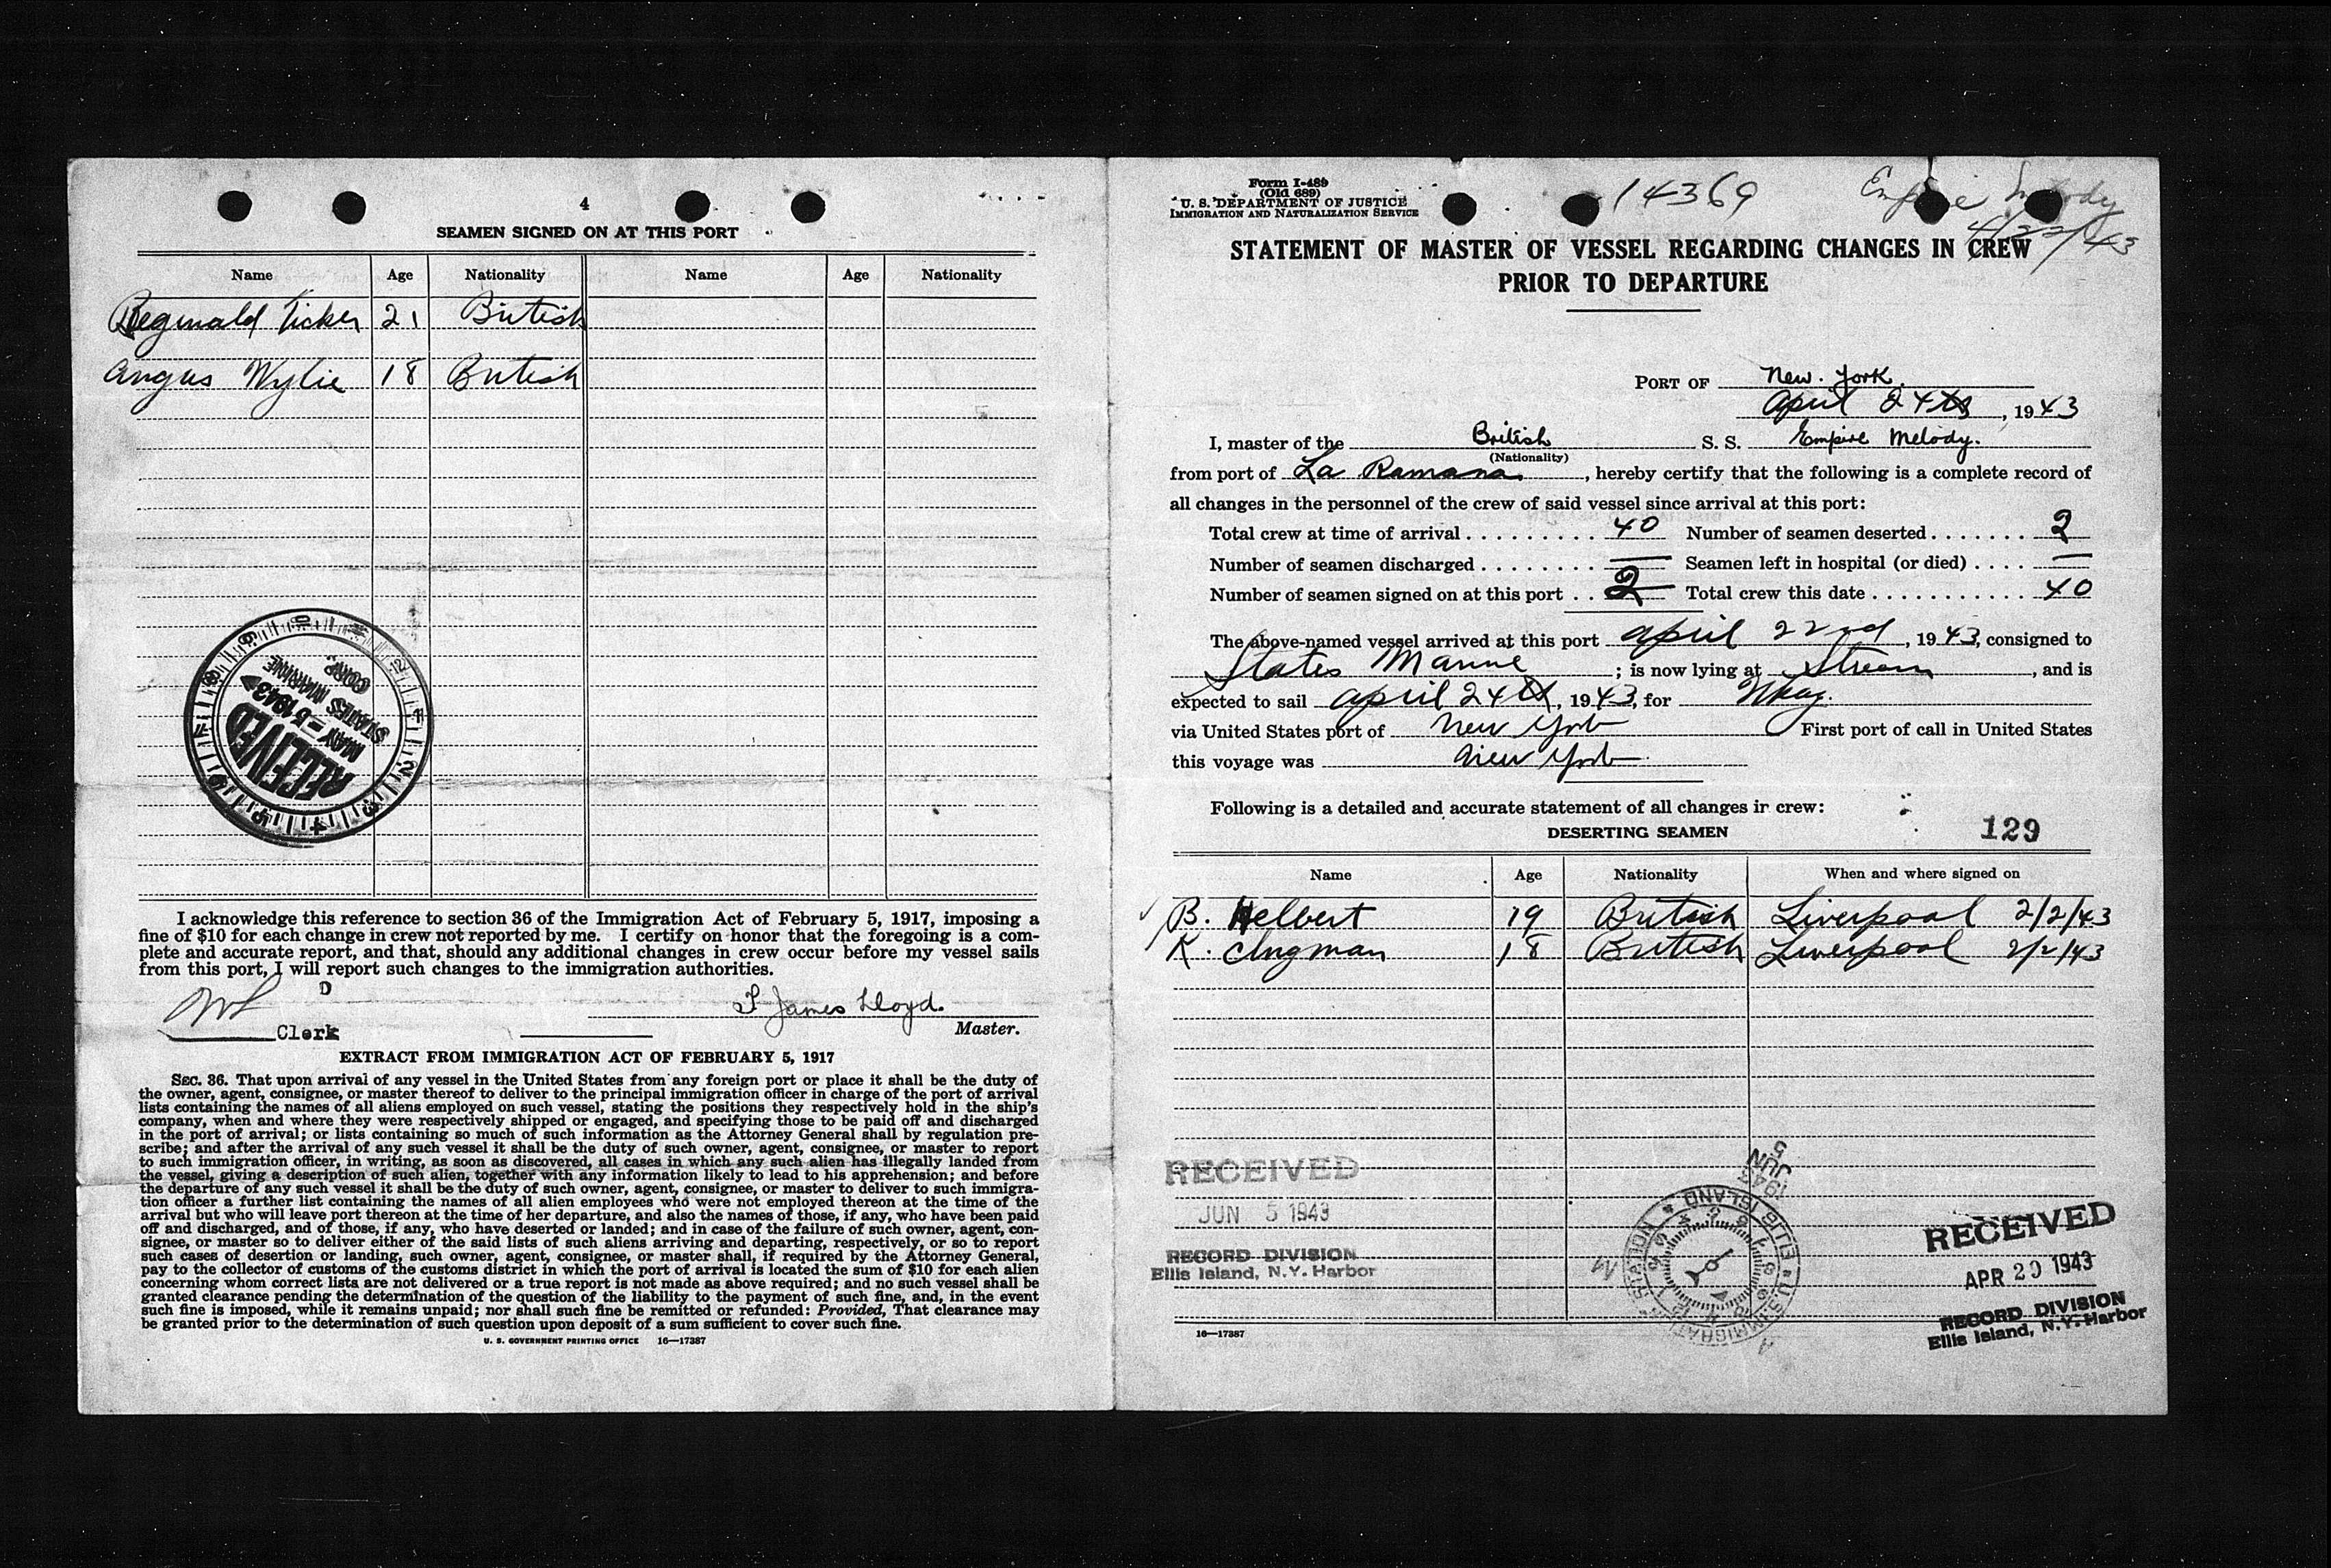 4
SEAMEN SIGNED ON AT THIS PORT
Name Age Nationality Name Age Nationality
Reginald Ticker 21 British
Angus Wylie 18 British
RECEIVED
MAY - 5 1943
STATES MARINE
CORP.
I acknowledge this reference to section 36 of the Immigration Act of February 5, 1917, imposing a
fine of $10 for each change in crew not reported by me. I certify on honor that the foregoing is a com-
plete and accurate report, and that, should any additional changes in crew occur before my vessel sails
from this port, I will report such changes to the immigration authorities.
D
James Lloyd.
Clerk Master.
EXTRACT FROM IMMIGRATION ACT OF FEBRUARY 5, 1917
SEC. 36. That upon arrival of any vessel in the United States from any foreign port or place it shall be the duty of
the owner, agent, consignee, or master thereof to deliver to the principal immigration officer in charge of the port of arrival
lists containing the names of all aliens employed on such vessel, stating the positions they respectively hold in the ship's
company, when and where they were respectively shipped or engaged, and specifying those to be paid off and discharged
in the port of arrival; or lists containing so much of such information as the Attorney General shall by regulation pre-
scribe; and after the arrival of any such vessel it shall be the duty of such owner, agent, consignee, or master to report
to such immigration officer, in writing, as soon as discovered, all cases in which any such alien has illegally landed from
the vessel, giving a description of such alien, together with any information likely to lead to his apprehension; and before
the departure of any such vessel it shall be the duty of such owner, agent, consignee, or master to deliver to such immigra-
tion officer a further list containing the names of all alien employees who were not employed thereon at the time of the
arrival but who will leave port thereon at the time of her departure, and also the names of those, if any, who have been paid
off and discharged, and of those, if any, who have deserted or landed; and in case of the failure of such owner, agent, con-
signee, or master so to deliver either of the said lists of such aliens arriving and departing, respectively, or so to report
such cases of desertion or landing, such owner, agent, consignee, or master shall, if required by the Attorney General,
pay to the collector of customs of the customs district in which the port of arrival is located the sum of $10 for each alien
concerning whom correct lists are not delivered or a true report is not made as above required; and no such vessel shall be
granted clearance pending the determination of the question of the liability to the payment of such fine, and, in the event
such fine is imposed, while it remains unpaid; nor shall such fine be remitted or refunded: Provided, That clearance may
be granted prior to the determination of such question upon deposit of a sum sufficient to cover such fine.
U. S. GOVERNMENT PRINTING OFFICE 16—17387
Form I-489
(Old 689)
U. S. DEPARTMENT OF JUSTICE
IMMIGRATION AND NATURALIZATION SERVICE
14369
Empire Melody
4/22/43
STATEMENT OF MASTER OF VESSEL REGARDING CHANGES IN CREW
PRIOR TO DEPARTURE
PORT OF New York
April 24th, 1943
I, master of the British S. S. Empire Melody.
(Nationality)
from port of La Ramana, hereby certify that the following is a complete record of
all changes in the personnel of the crew of said vessel since arrival at this port:
Total crew at time of arrival 40 Number of seamen deserted 2
Number of seamen discharged — Seamen left in hospital (or died) —
Number of seamen signed on at this port 2 Total crew this date 40
The above-named vessel arrived at this port April 22nd, 1943, consigned to
States Marine; is now lying at Stream, and is
expected to sail April 24th, 1943, for
via United States port of New York First port of call in United States
this voyage was New York
Following is a detailed and accurate statement of all changes in crew:
DESERTING SEAMEN
129
Name Age Nationality When and where signed on
B. Helbert 19 British Liverpool 2/2/43
K. Angman 18 British Liverpool 2/2/43
RECEIVED
JUN 5 1943
RECORD DIVISION
Ellis Island, N.Y. Harbor
1943
JUN
5
ELLIS ISLAND
U.S. IMMIGRATION
RECEIVED
APR 29 1943
RECORD DIVISION
Ellis Island, N.Y. Harbor
16—17387